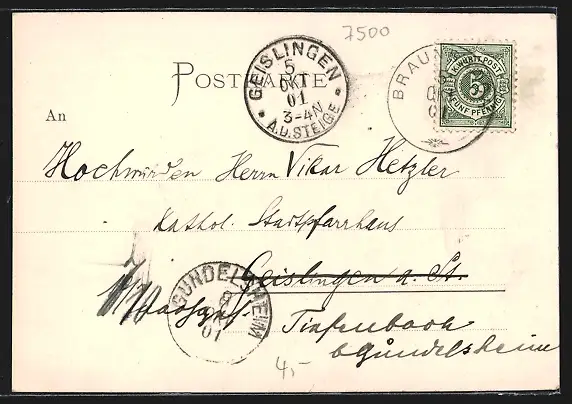 7500
POSTKARTE
GEISLINGEN
5
OKT
01
3-4N
A.D.STEIGE
BRAUN
5
OKT
01
K.WÜRTT.POST
5
FÜNF PFENNIG
An
Hochwürden Herrn Vikar Hetzler
Kathol. Stadtpfarrhaus
Geislingen a. St.
GUNDELSHEIM
8
OKT
01
Tiefenbach
b Gundelsheim
4,-